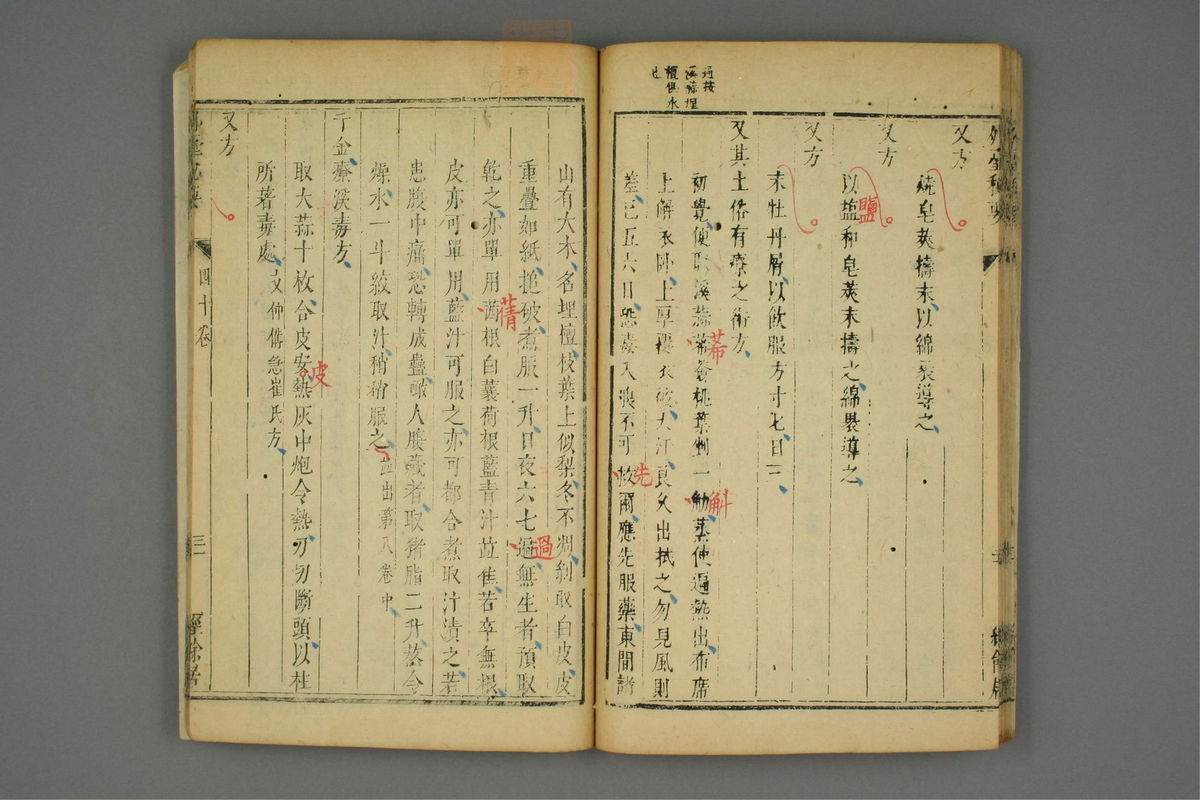 又方
燒皂莢擣末以綿裹導之
又方
以塩和皂莢末擣之綿裹導之
鹽
又方
末牡丹屑以飲服方寸匕日三
又其土俗有療之術方
初覺便取溪蒜蒂蒼桃葉剉一觔蒸使遍熱出布席
上解衣卧上厚覆衣被大汗良久出拭之勿見風則
差已五六日恐毒入喪不可救爾應先服藥東間諸
山有大木名埋檀枝葉上似梨冬不凋剝取白皮皮
重疊如紙搥破煮服一升日夜六七遍無生者預取
過
乾之亦單用茜根白蘘荷根藍青汁竝佳若卒無根
蒨
皮亦可單用藍汁可服之亦可都合煮取汁漬之若
患腹中痛恐轉成蠱噉人腹藏者取猪脂二升蒸令
燥水一斗絞取汁稍稍服之並出第八卷中
千金療溪毒方
取大蒜十枚合皮安熱灰中炮令熱刀切斷頭以柱
皮
所著毒處文仲備急崔氏方
又方
四十卷
經餘居